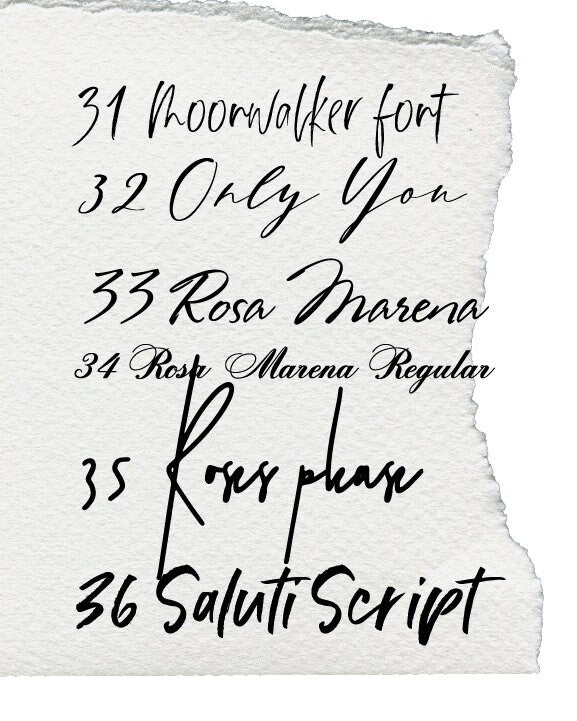 31 Moonwalker font
32 Only You
33 Rosa Marena
34 Rosa Marena Regular
35 Roses please
36 Saluti Script